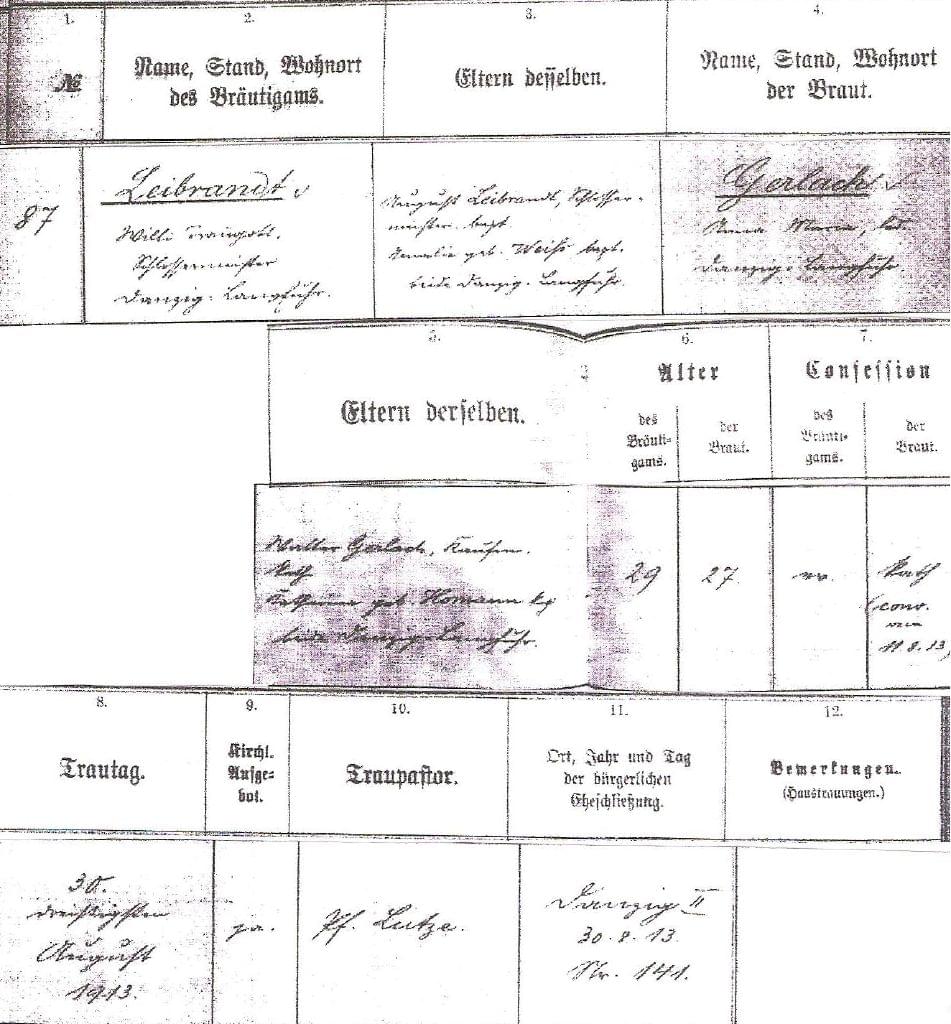 1.
№
2.
Name, Stand, Wohnort
des Bräutigams.
3.
Eltern desselben.
4.
Name, Stand, Wohnort
der Braut.
87
Leibrandt
Willi Traugott,
Schlossermeister
Danzig-Langfuhr.
August Leibrandt, Schlosser-
meister
geb. Weiss
beide Danzig-Langfuhr
Gerlach
Anna Maria,
Danzig-Langfuhr.
5.
Eltern derselben.
6.
Alter
des
Bräuti-
gams.
der
Braut.
7.
Confession
des
Bräuti-
gams.
der
Braut.
Walter Gerlach, Kaufm.
geb. Homann
beide Danzig-Langfuhr.
29
27
ev.
kath
(conv.
11.8.13)
8.
Trautag.
9.
Kirchl.
Aufge-
bot.
10.
Traupastor.
11.
Ort, Jahr und Tag
der bürgerlichen
Eheschließung.
12.
Bemerkungen.
(Haustrauungen.)
30.
dreißigsten
August
1913.
ja.
Pf. Lutze.
Danzig II
30.8.13.
Nr. 141.